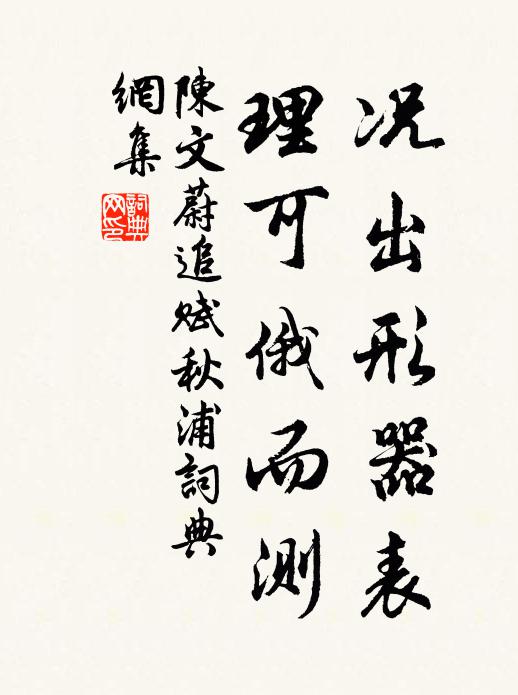 况出形器表
理可俄而測
陳文蔚追賦秋浦詞典
網集
詞典
网印